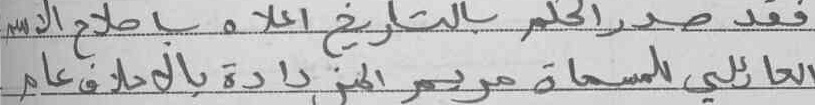 فقد صدر الحكم بالتاريخ اعلاه باصلاح الاسم
العائلي للمسماة مريم دادة بالاحلاف عام